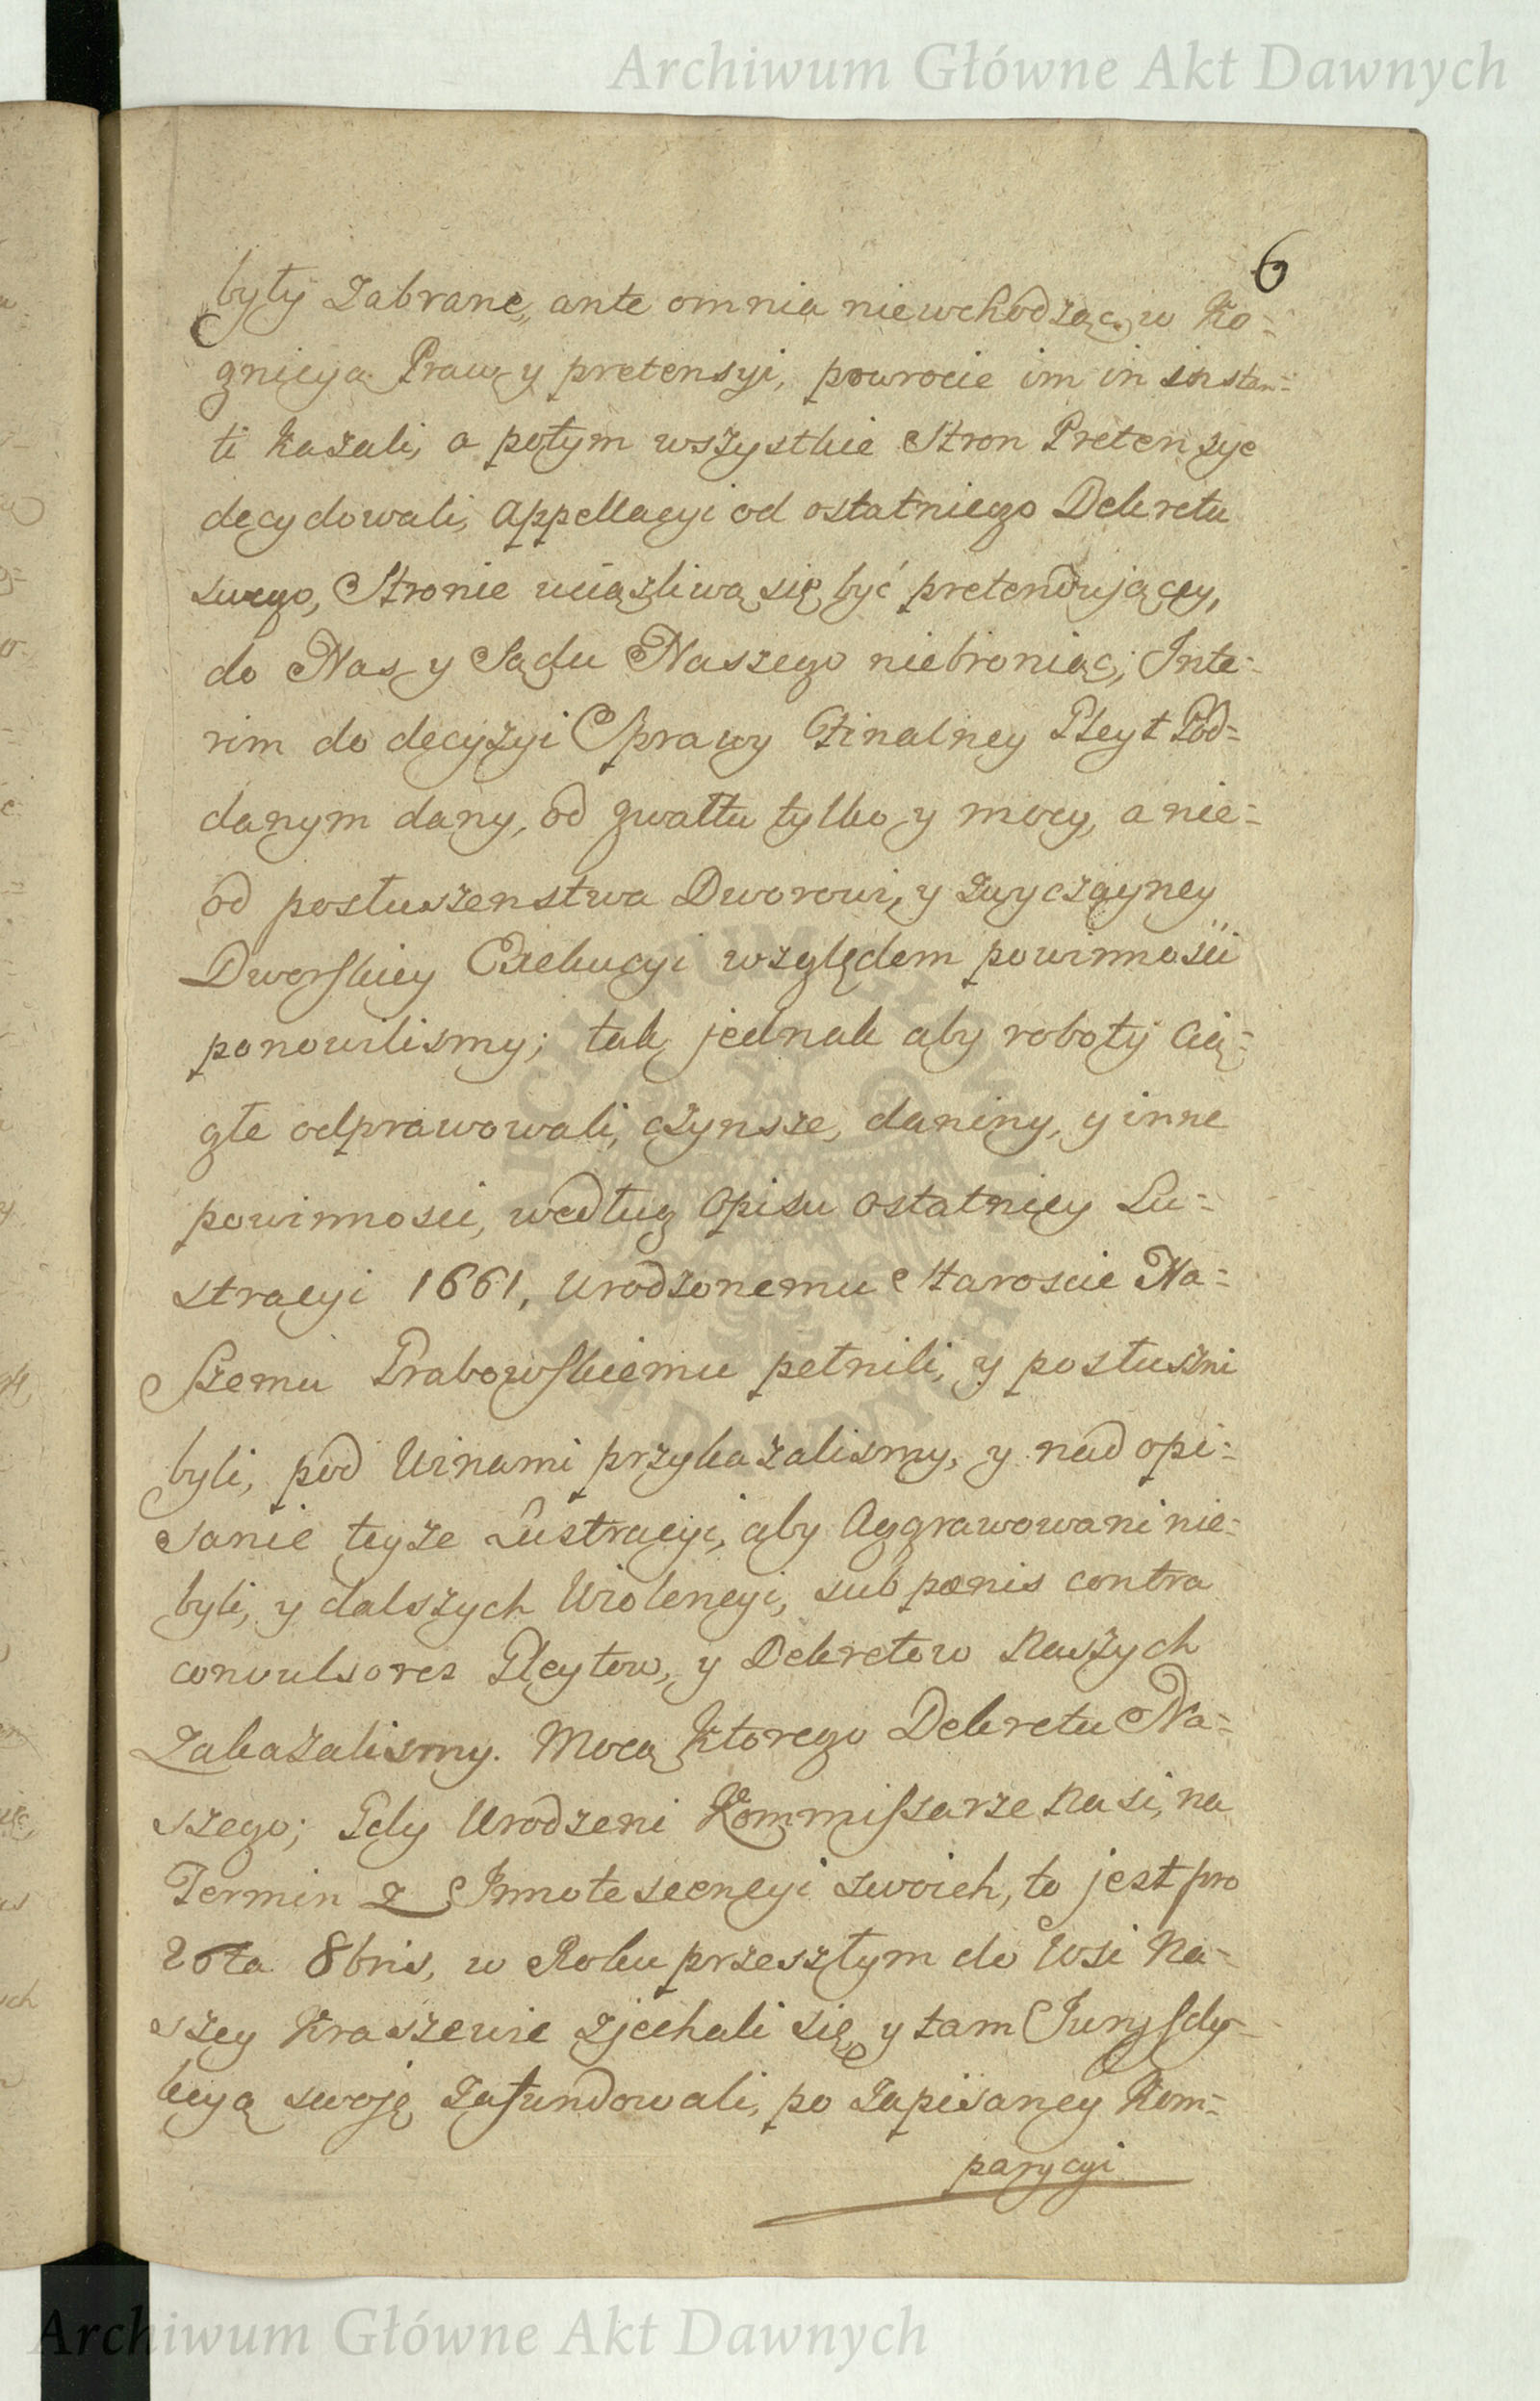 Archiwum Główne Akt Dawnych
6
były zabrane, ante omnia niewchodząc w Ko=
gnicyą Praw y pretensyi, powrocic im in instan=
ti kazali, a potym wszystkie Stron Pretensye
decydowali, Appellacyi od ostatniego Dekretu
swego, Stronie uciążliwą się być pretendującey,
do Nas y Sądu Naszego niebroniąc; Inte=
rim do decyzyi Sprawy Finalney Gleyt Pod=
danym dany, od gwałtu tylko y mocy, a nie=
od posłuszenstwa Dworowi, y zwyczayney
Dworskiey Exekucyi względem powinnosci
ponowilismy; tak jednak aby roboty Cią=
głe odprawowali, czynsze, daniny, y inne
powinnosci, według Opisu ostatniey Lu=
stracyi 1661, Urodzonemu Staroscie Na=
szemu Grabowskiemu pełnili, y posłuszni
byli, pod Winami przykazalismy, y nad opi=
sanie teyże Lustracyi, aby Aggrawowani nie=
byli, y dalszych Wiolencyi, sub pœnis contra
convulsores Gleytow, y Dekretow Naszych
zakazalismy. Mocą ktorego Dekretu Na=
szego; Gdy Urodzeni Kommissarze Nasi, na
Termin z Innotescencyi swoich, to jest pro
20ta 8bris, w Roku przeszłym do Wsi Na=
szey Kraszewie zjechali się, y tam Juryzdy=
kcyą swoję zafundowali, po zapisaney Kom=
parycyi
Archiwum Główne Akt Dawnych